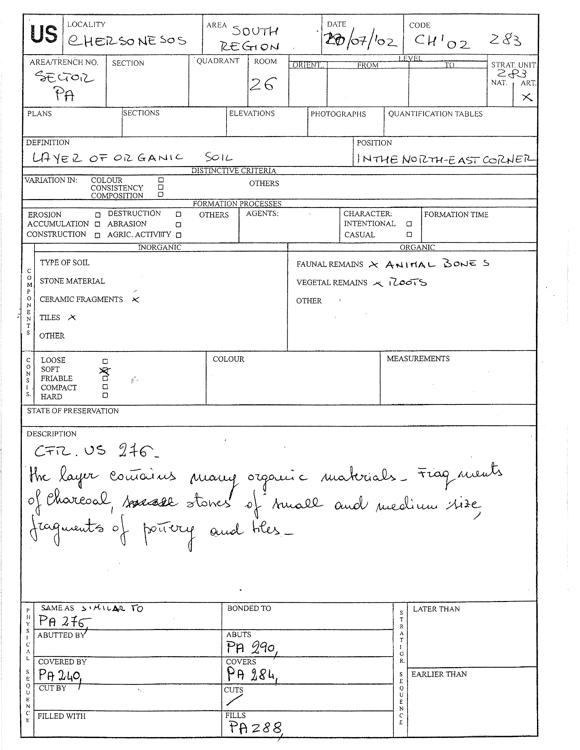 US
LOCALITY
CHERSONESOS
AREA SOUTH
REGION
DATE
20/07/'02
CODE
CH'02 283
AREA/TRENCH NO.
SECTOR
PA
SECTION
QUADRANT
ROOM
26
LEVEL
ORIENT. FROM TO
STRAT. UNIT
283
NAT. ART.
X
PLANS
SECTIONS
ELEVATIONS
PHOTOGRAPHS
QUANTIFICATION TABLES
DEFINITION
LAYER OF ORGANIC SOIL
POSITION
IN THE NORTH-EAST CORNER
DISTINCTIVE CRITERIA
VARIATION IN: COLOUR
CONSISTENCY
COMPOSITION
OTHERS
FORMATION PROCESSES
EROSION
ACCUMULATION
CONSTRUCTION
DESTRUCTION
ABRASION
AGRIC. ACTIVITY
OTHERS
AGENTS:
CHARACTER:
INTENTIONAL
CASUAL
FORMATION TIME
COMPONENTS
INORGANIC
TYPE OF SOIL
STONE MATERIAL
CERAMIC FRAGMENTS X
TILES X
OTHER
ORGANIC
FAUNAL REMAINS X ANIMAL BONES
VEGETAL REMAINS X ROOTS
OTHER
CONSIS.
LOOSE
SOFT X
FRIABLE
COMPACT
HARD
COLOUR
MEASUREMENTS
STATE OF PRESERVATION
DESCRIPTION
CFR. US 276-
the layer contains many organic materials- Fragments
of charcoal, stones of small and medium size,
fragments of pottery and tiles-
PHYSICAL SEQUENCE
SAME AS SIMILAR TO
PA 276,
BONDED TO
ABUTTED BY
ABUTS
PA 290,
COVERED BY
PA 240,
COVERS
PA 284,
CUT BY
CUTS
/
FILLED WITH
FILLS
PA 288,
STRATIGR. SEQUENCE
LATER THAN
EARLIER THAN